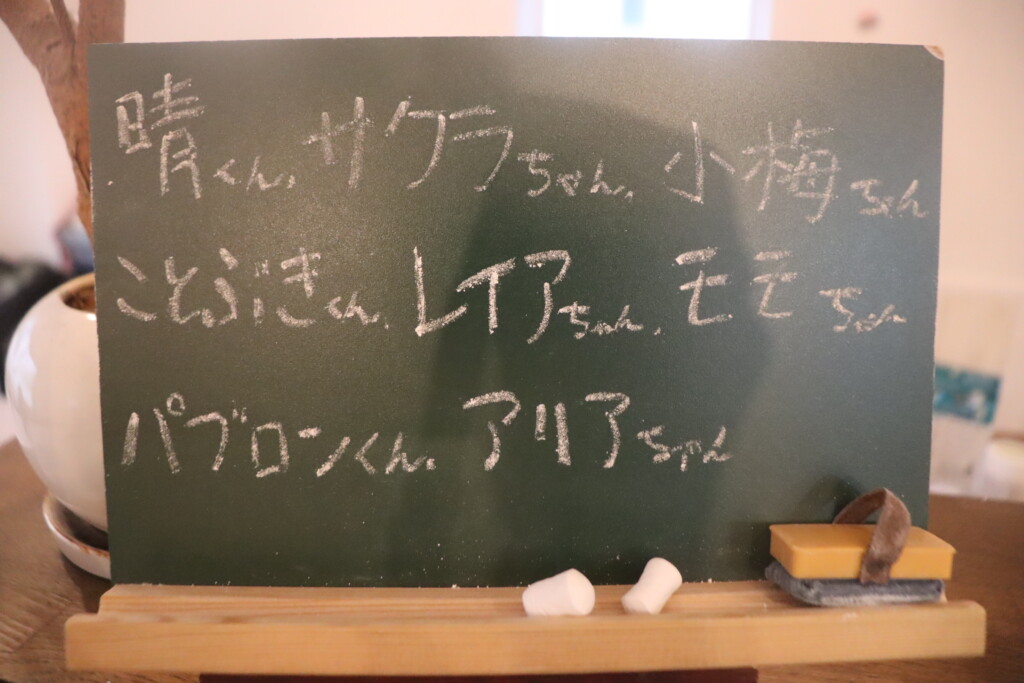 晴くん、サクラちゃん、小梅ちゃん
ことぶきくん、レイアちゃん、モモちゃん
パブロンくん、アリアちゃん